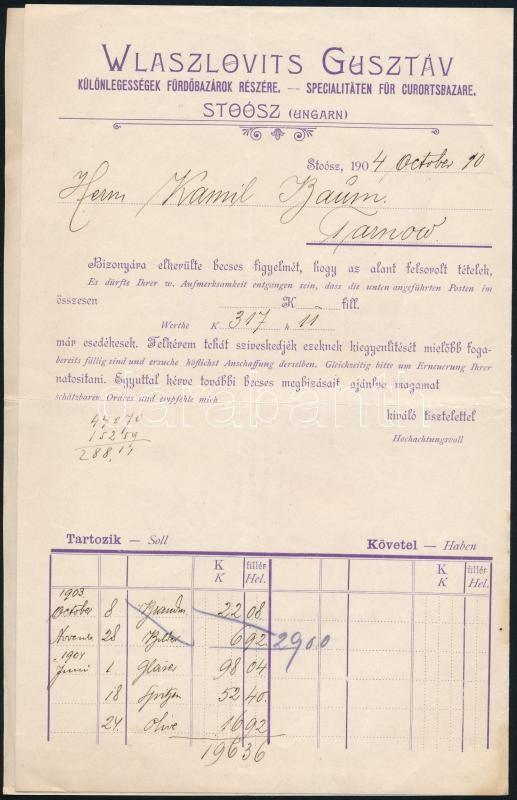 WLASZLOVITS GUSZTÁV
KÜLÖNLEGESSÉGEK FÜRDŐBAZÁROK RÉSZÉRE. — SPECIALITÄTEN FÜR CURORTSBAZARE.
STOÓSZ (UNGARN)
Stoósz, 1904 October 10
Herrn Kamil Baum.
Tarnow.
Bizonyára elkerülte becses figyelmét, hogy az alant felsorolt tételek,
Es dürfte Ihrer w. Aufmerksamkeit entgangen sein, dass die unten angeführten Posten im
összesen K fill.
Werthe K 317 h 11
már esedékesek. Felkérem tehát sziveskedjék ezeknek kiegyenlítését mielőbb foga-
bereits fällig sind und ersuche höflichst Anschaffung derselben. Gleichzeitig bitte um Erneuerung Ihrer
natosítani. Egyuttal kérve további becses megbizásait ajánlva magamat
schätzbaren Ordres und empfehle mich
darabanth
kiváló tisztelettel
Hochachtungsvoll
152 59
288,17
Tartozik — Soll Követel — Haben
K fillér K fillér
K Hel. K Hel.
1903
October 8 22 08
28 6 92 2900
1904
Juni 1 Gläser 98 04
18 52 40
24 Olive 16 92
196 36